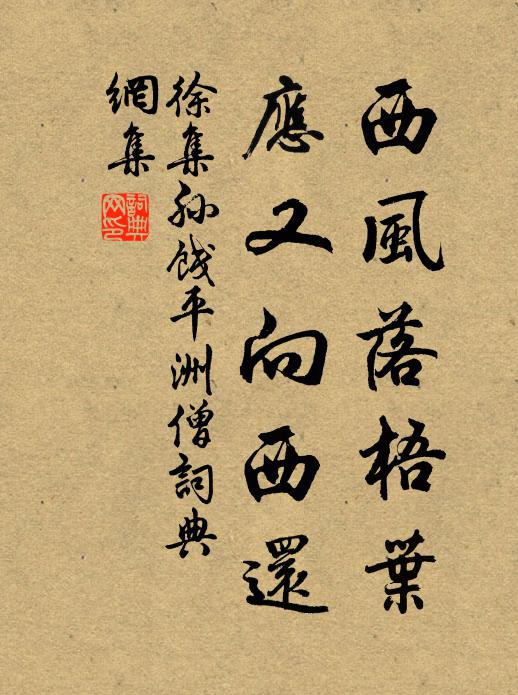 西風落梧葉
應又向西還
徐集孙餞平洲僧詞典
網集
詞典
网印